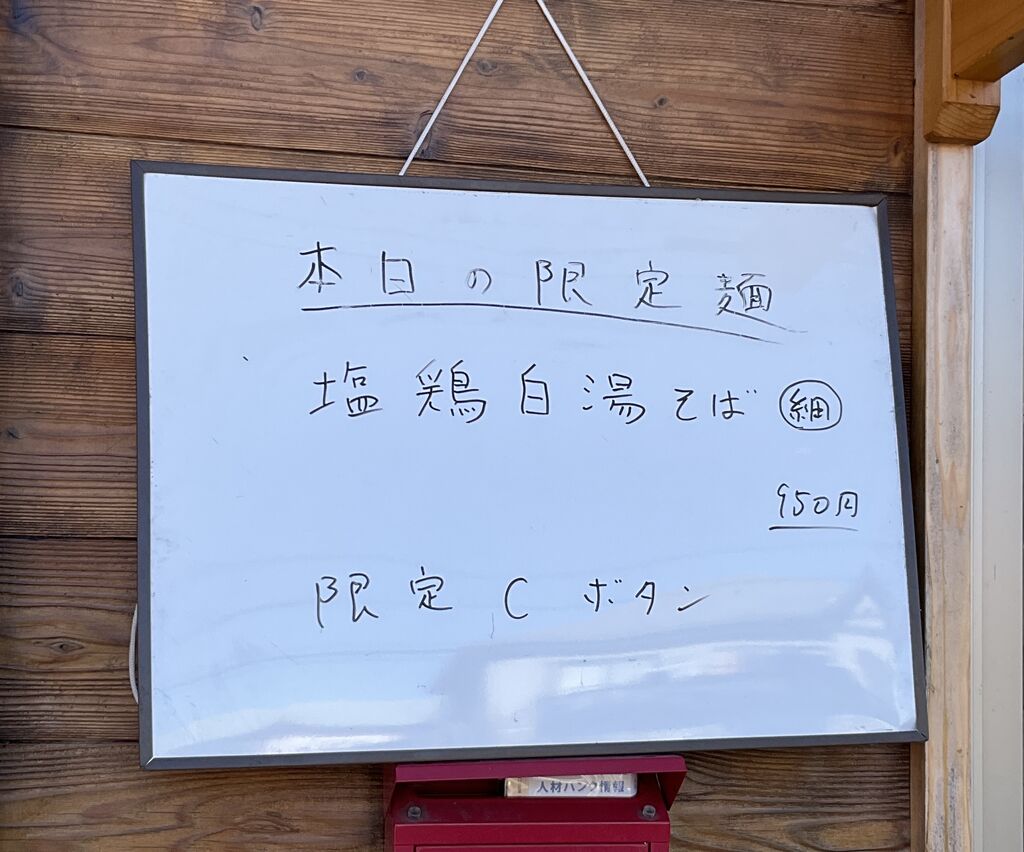 本日の限定麺
塩鶏白湯そば 細
950円
限定Cボタン
人材バンク情報